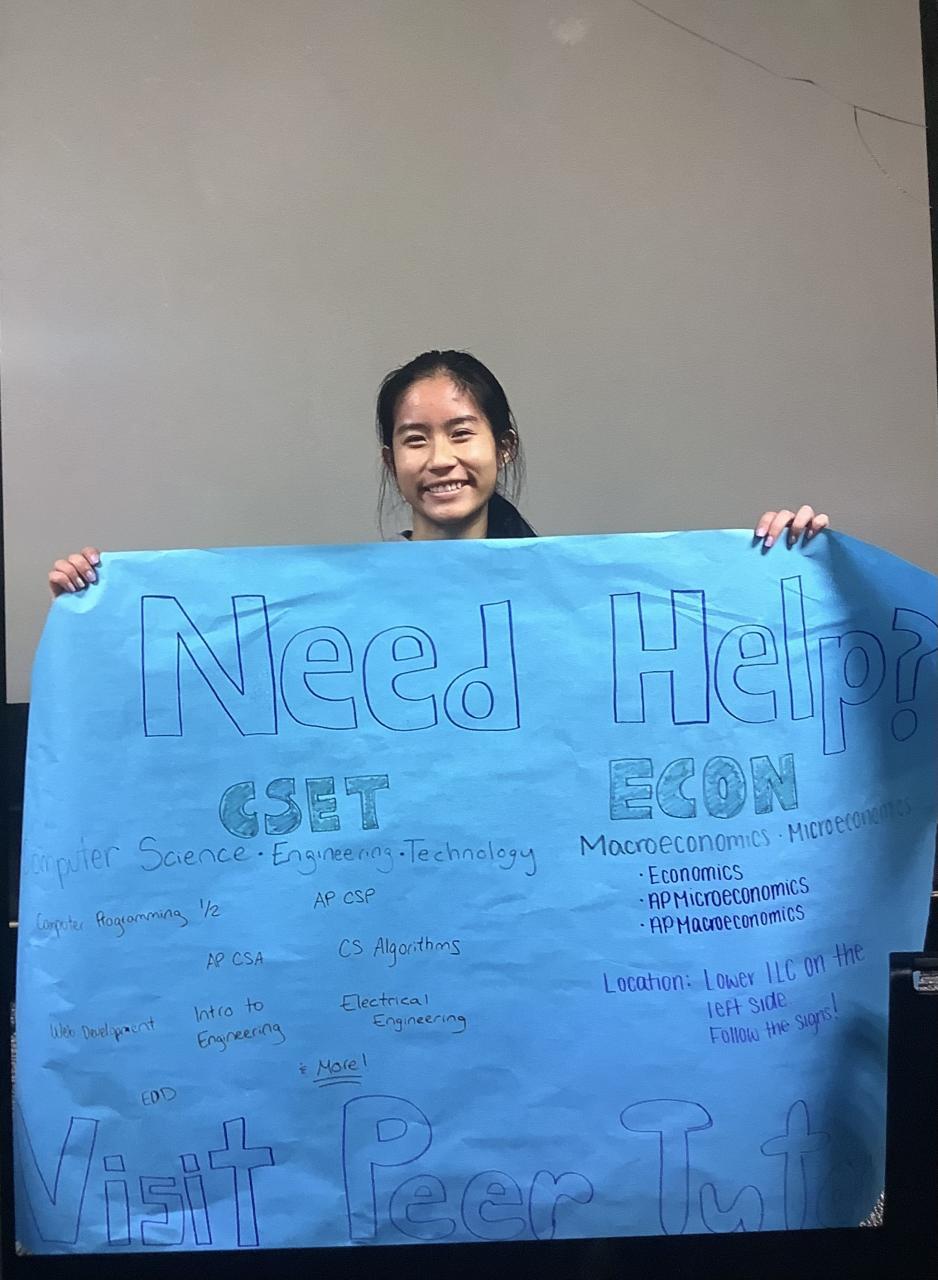 Need Help?
CSET
Computer Science · Engineering · Technology
Computer Programming 1/2
AP CSP
AP CSA
CS Algorithms
Web Development
Intro to
Engineering
Electrical
Engineering
EDD
& More!
ECON
Macroeconomics · Microeconomics
· Economics
· AP Microeconomics
· AP Macroeconomics
Location: Lower ILC on the
left side
Follow the signs!
Visit Peer Tuto